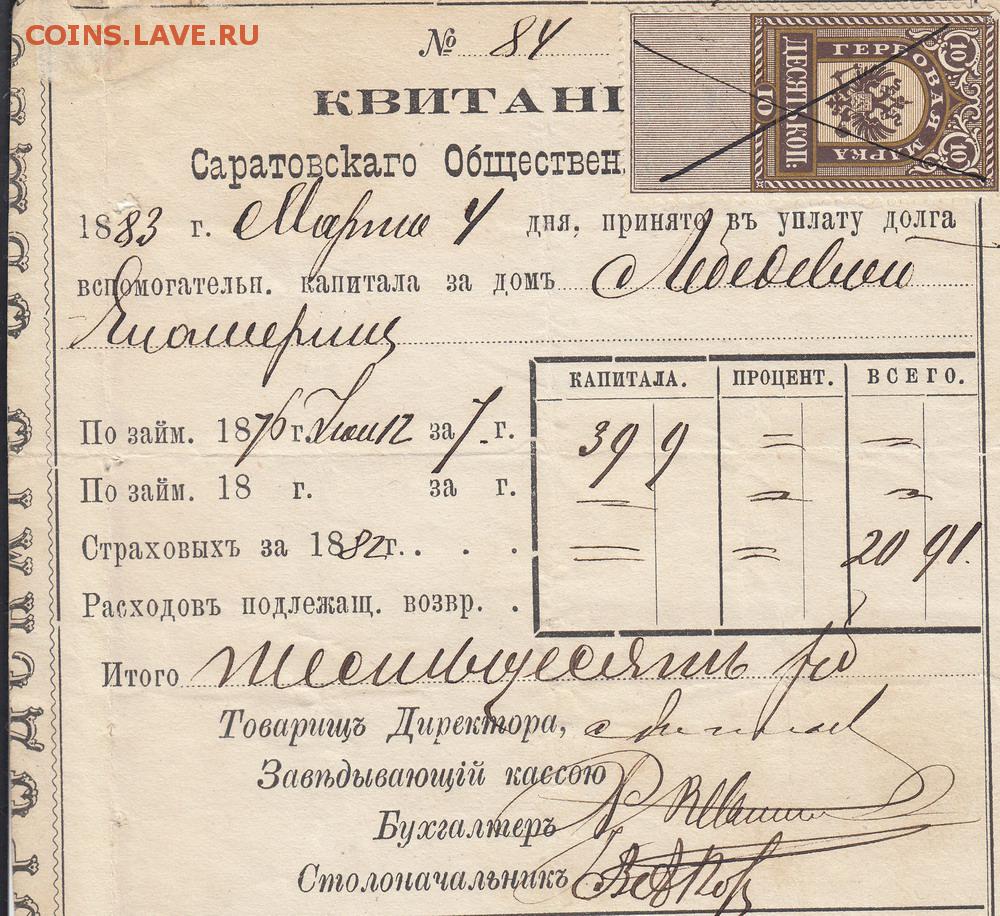 COINS.LAVE.RU
№ 84
КВИТАНІ
Саратовскаго Обществен
ГЕРБОВАЯ МАРКА
10 10
ДЕСЯТЬ КОП:
10
1883 г. Марта 4 дня, принято въ уплату долга
вспомогательн. капитала за домъ Лебедевой
Екатерины
КАПИТАЛА. ПРОЦЕНТ. ВСЕГО.
По займ. 1876 г. Іюн 12 за 7 г. 39 9 = =
По займ. 18 г. за г. = = =
Страховыхъ за 1882 г. . . . = = 20 91.
Расходовъ подлежащ. возвр. .
Итого шестьдесятъ руб
Товарищъ Директора,
Завѣдывающій кассою
Бухгалтеръ
Столоначальникъ